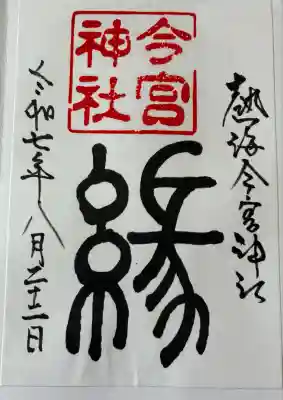 熱海今宮神社
今宮神社
縁
令和七年八月二十二日